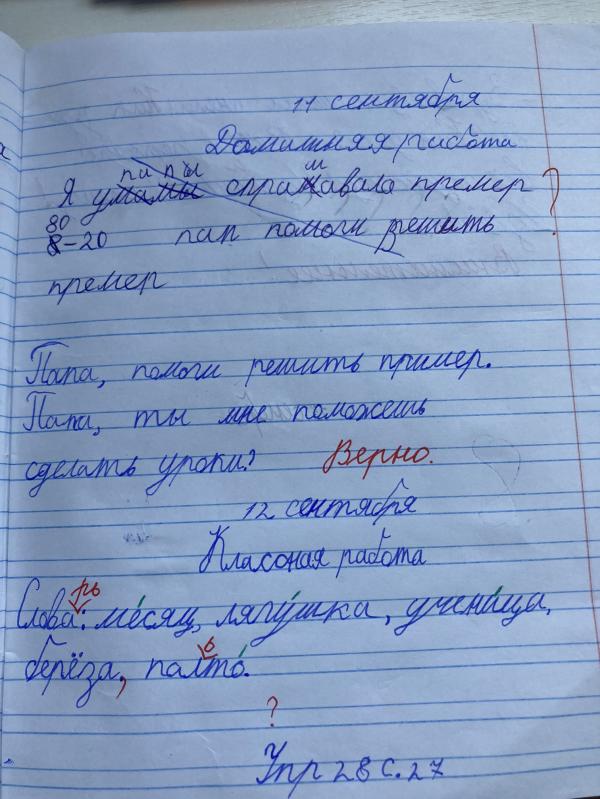 11 сентября
Домишняя рибота
па пы
м
Я умамы спрашавала премер ?
80
8-20 пап помоги решить
премер
Папа, помоги решить пример.
Папа, ты мне поможешь
сделать уроки? Верно.
12 сентября
Классная работа
рь
Слова: месяц, лягушка, ученица,
ь
берёза, палто.
?
Упр 28 с. 27